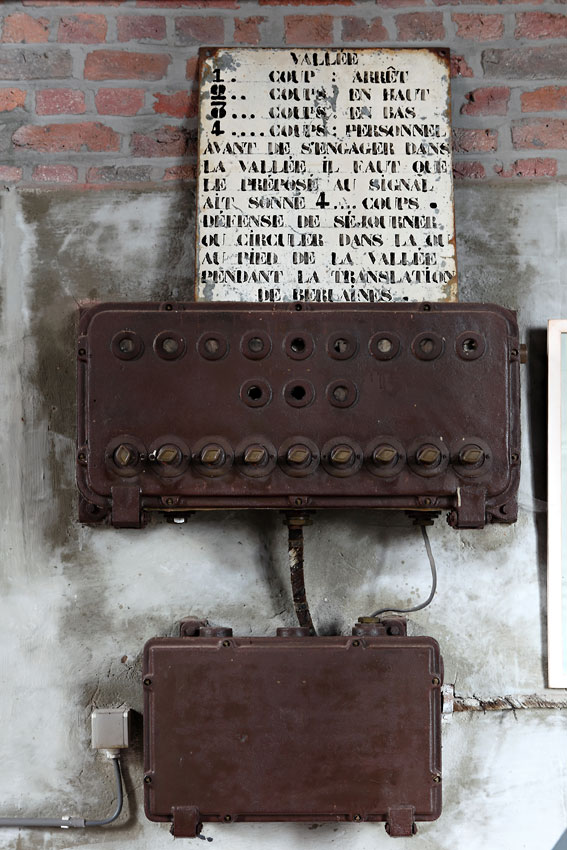 VALLÉE
1. COUP : ARRÊT
2.. COUPS : EN HAUT
3... COUPS : EN BAS
4.... COUPS : PERSONNEL
AVANT DE S'ENGAGER DANS
LA VALLÉE IL FAUT QUE
LE PRÉPOSÉ AU SIGNAL
AIT SONNÉ 4.... COUPS.
DÉFENSE DE SÉJOURNER
OU CIRCULER DANS LA OU
AU PIED DE LA VALLÉE
PENDANT LA TRANSLATION
DE BERLAINES.